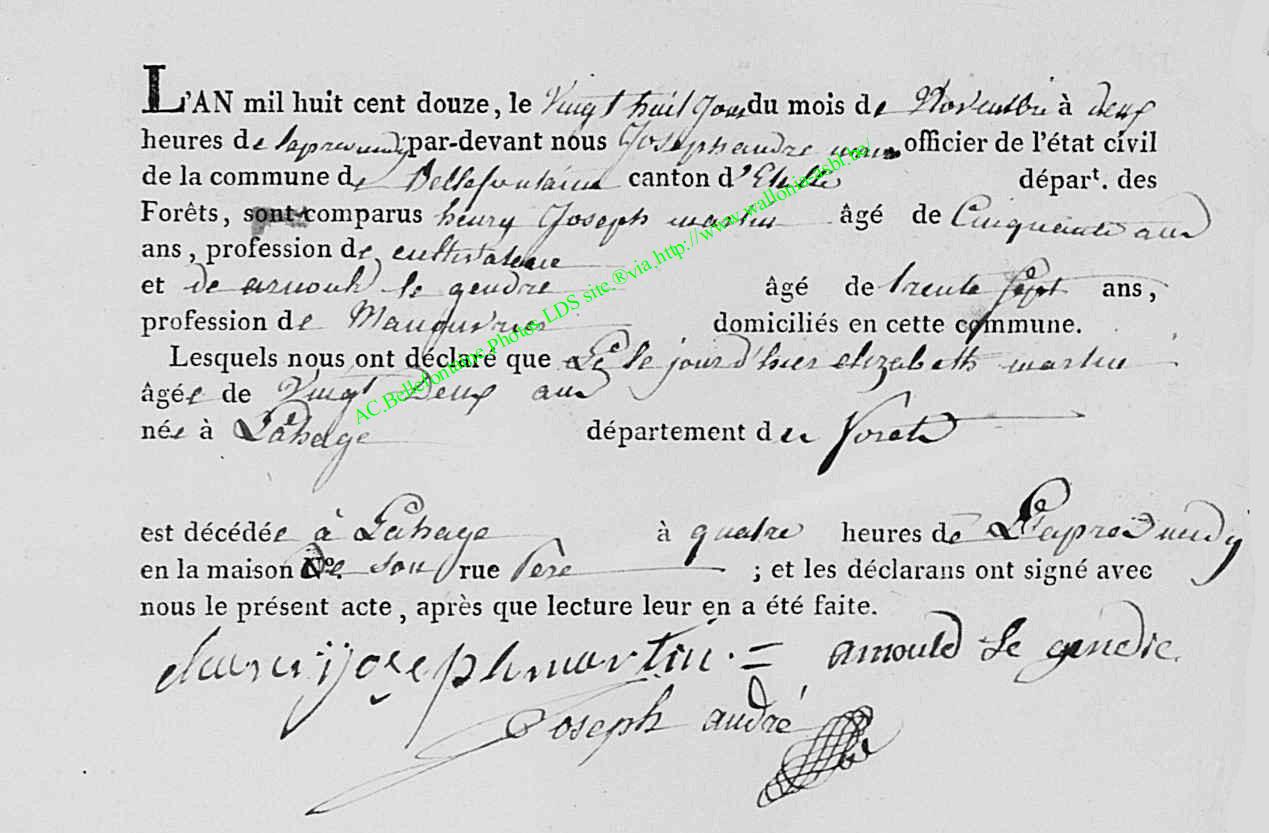 L'AN mil huit cent douze, le Vingt huit Jour du mois de Novembre à deux
heures de lapres midy par-devant nous Joseph andre maire officier de l'état civil
de la commune de Bellefontaine canton d'Etalle départ. des
Forêts, sont comparus henry Joseph martin âgé de Cinquante ans
ans, profession de cultivateur
et de arnould le gendre âgé de trente sept ans,
profession de Manouvrier domiciliés en cette commune.
Lesquels nous ont déclaré que le jour d'hier elizabeth martin
âgée de Vingt Deux ans
née à Lahage département de forets
est décédée à Lahage à quatre heures de L'apres midy
en la maison No. de son rue Pere ; et les déclarans ont signé avec
nous le présent acte, après que lecture leur en a été faite.
henri joseph martin = arnould le gendre
Joseph andré
AC.Bellefontaine.Photos LDS site ®via http://www.wallonia-asbl.be/